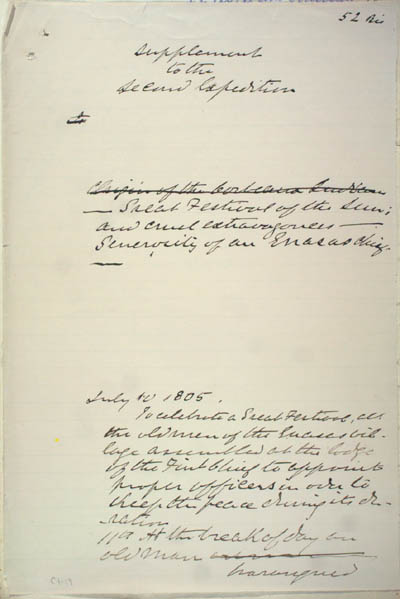 52 Bis
Supplement
to the
Second Expedition
to
Origin of the Corbeaus Indians
— Great Festival of the Sun;
and cruel extravagances —
Generosity of an Enasas Chief
—
July 10 1805.
To celebrate a Great Festival, all
the old men of the Enasas vil-
lage assembled at the lodge
of the First Chief to appoint
proper officers in oder to
keep the peace during its du-
ration
11th At the break of day an
old man
harangued
C1:19